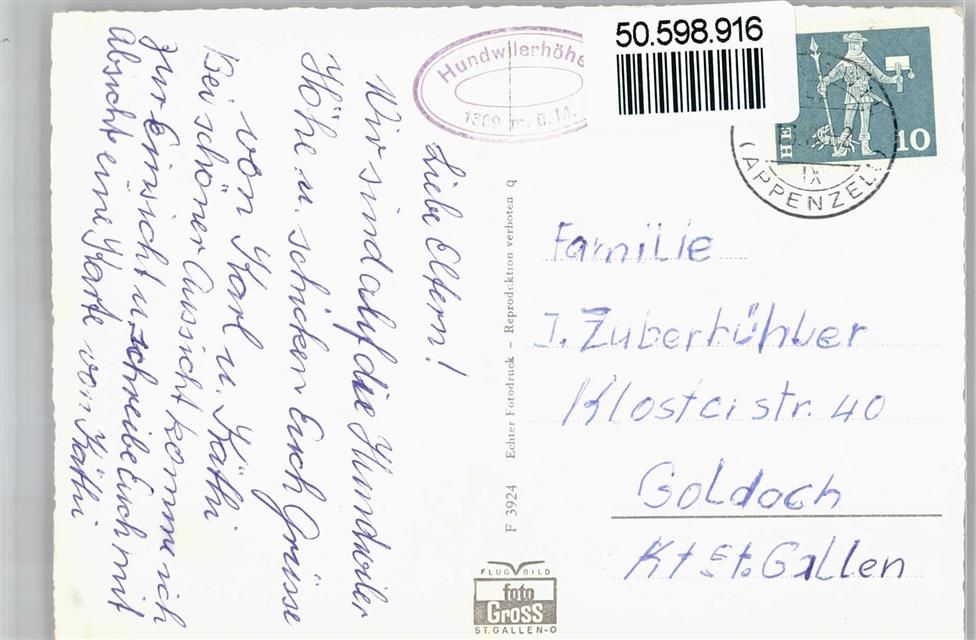 Liebe Eltern!
Wir sind auf die Hundwiler
Höhe u. schicken Euch Grüsse
von Karl u. Käthi
Bei schöner Aussicht komme ich
zur Einsicht u. schreibe Euch mit
Absicht eine Karte von Käthi
Hundwilerhöhe
1309 m. ü. M.
50.598.916
HE
10
IX
(APPENZELL
Familie
J. Zuberbühler
Klosterstr. 40
Goldach
Kt St. Gallen
F 3924 Echter Fotodruck – Reproduktion verboten q
FLUGBILD
foto
Gross
ST. GALLEN-O